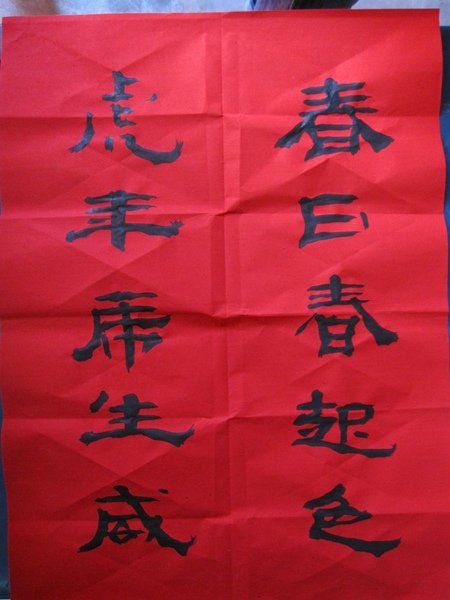 春日春起色
虎年虎生威